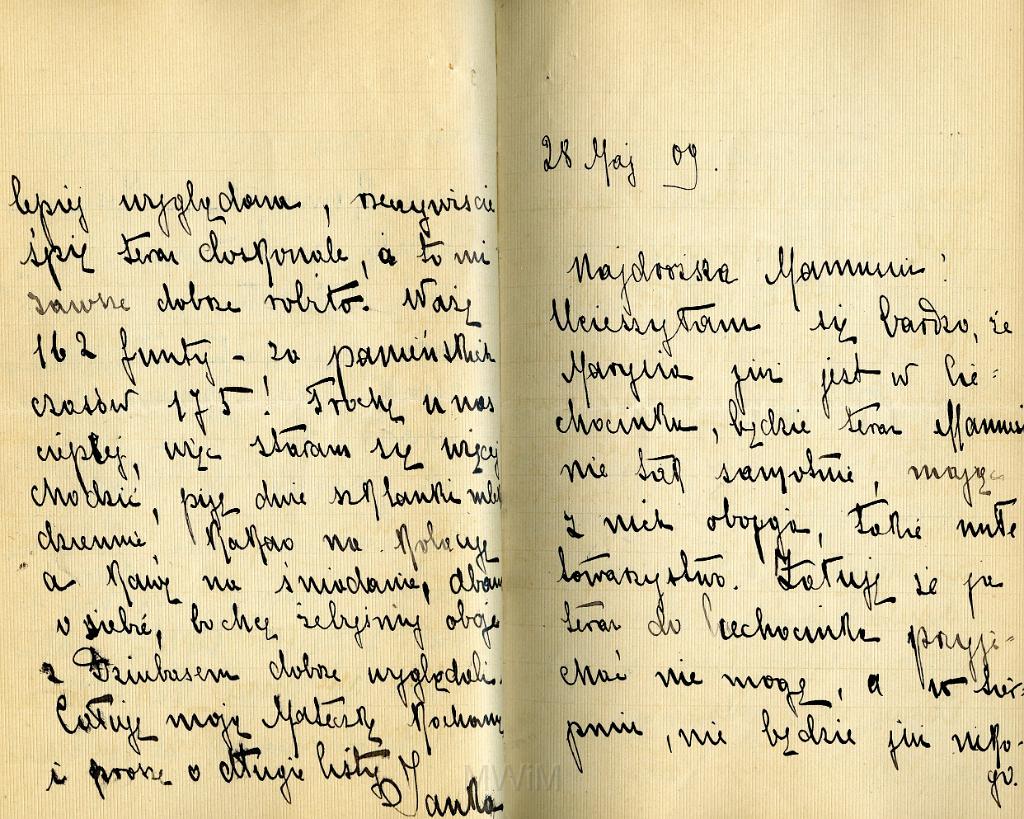 28 Maj 09.
Najdroższa Mamusiu!
Ucieszyłam się bardzo, że
Marysia już jest w Cie=
chocinku, będzie teraz Mamusi
nie tak samotnie, mając
z nich obojga, takie miłe
towarzystwo. Żałuję że ja
teraz do Ciechocinka przyje=
chać nie mogę, a w sier=
pniu, nie będzie już niko-
go.
lepiej wyglądam, rzeczywiście
śpię teraz doskonale, a to mi
zawsze dobrze robiło. Ważę
162 funty - za panieńskich
czasów 175! Trochę u nas
cieplej, więc staram się więcej
chodzić, piję dwie szklanki mleka
dziennie, kakao na kolację
a kawę na śniadanie, dbam
o siebie, bo chcę żebyśmy oboje
z Dziubasem dobrze wyglądali.
Całuję moją Mateczkę kochaną
i proszę o długie listy
Janka
MWiM